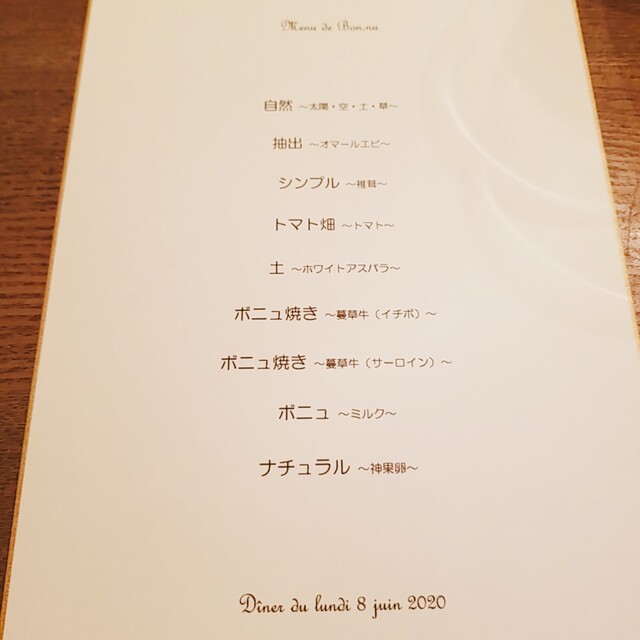 Menu de Bon.nu
自然 ～太陽・空・土・草～
抽出 ～オマールエビ～
シンプル ～椎茸～
トマト畑 ～トマト～
土 ～ホワイトアスパラ～
ボニュ焼き ～蔓草牛（イチボ）～
ボニュ焼き ～蔓草牛（サーロイン）～
ボニュ ～ミルク～
ナチュラル ～神果卵～
Dîner du lundi 8 juin 2020